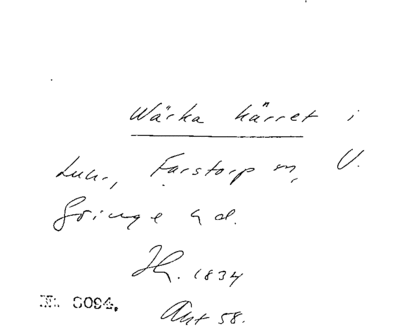 Wärka kärret i
Luhr, Farstorp m, V.
Göinge hd.
Jh. 1834
Akt 58.
6094.